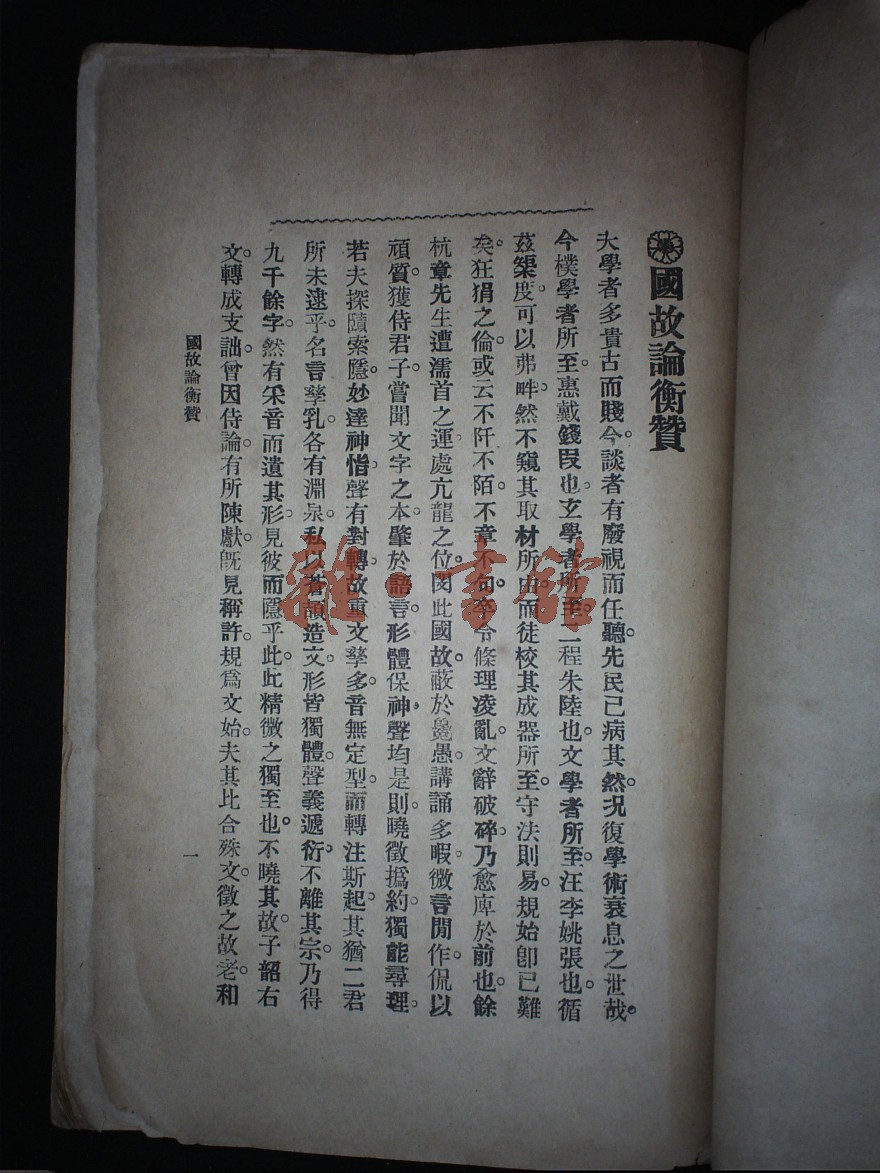 國故論衡贊
大學者多貴古而賤今。談者有廢視而任聽。先民已病其然。況復學術衰息之世哉。
今樸學者所至。惠戴錢段也。玄學者所至。二程朱陸也。文學者所至。汪李姚張也。循
茲榘度。可以弗畔。然不窺其取材所由。而徒校其成器所至。守法則易。規始卽已難
矣。狂狷之倫。或云不阡不陌。不章不句。卒令條理凌亂。文辭破碎。乃愈庳於前也。餘
杭章先生遭濡首之運。處亢龍之位。閔此國故。蔽於愚。講誦多暇。微言閒作。侃以
頑質。獲侍君子。嘗聞文字之本。肇於語言。形體保神。聲均是則。曉徵撝約。獨能尋理。
若夫探賾索隱。妙達神恉。聲有對轉。故重文孳多。音無定型。而轉注斯起。其猶二君
所未逮乎。名言孳乳。各有淵泉。私以蒼頡造文。形皆獨體。聲義遞衍。不離其宗。乃得
九千餘字。然有采音而遺其形。見彼而隱乎此。此精微之獨至也。不曉其故。子韶右
文。轉成支詘。曾因侍論。有所陳獻。旣見稱許。規爲文始。夫其比合殊文。徵之故老。和
國故論衡贊
一
雜·書館